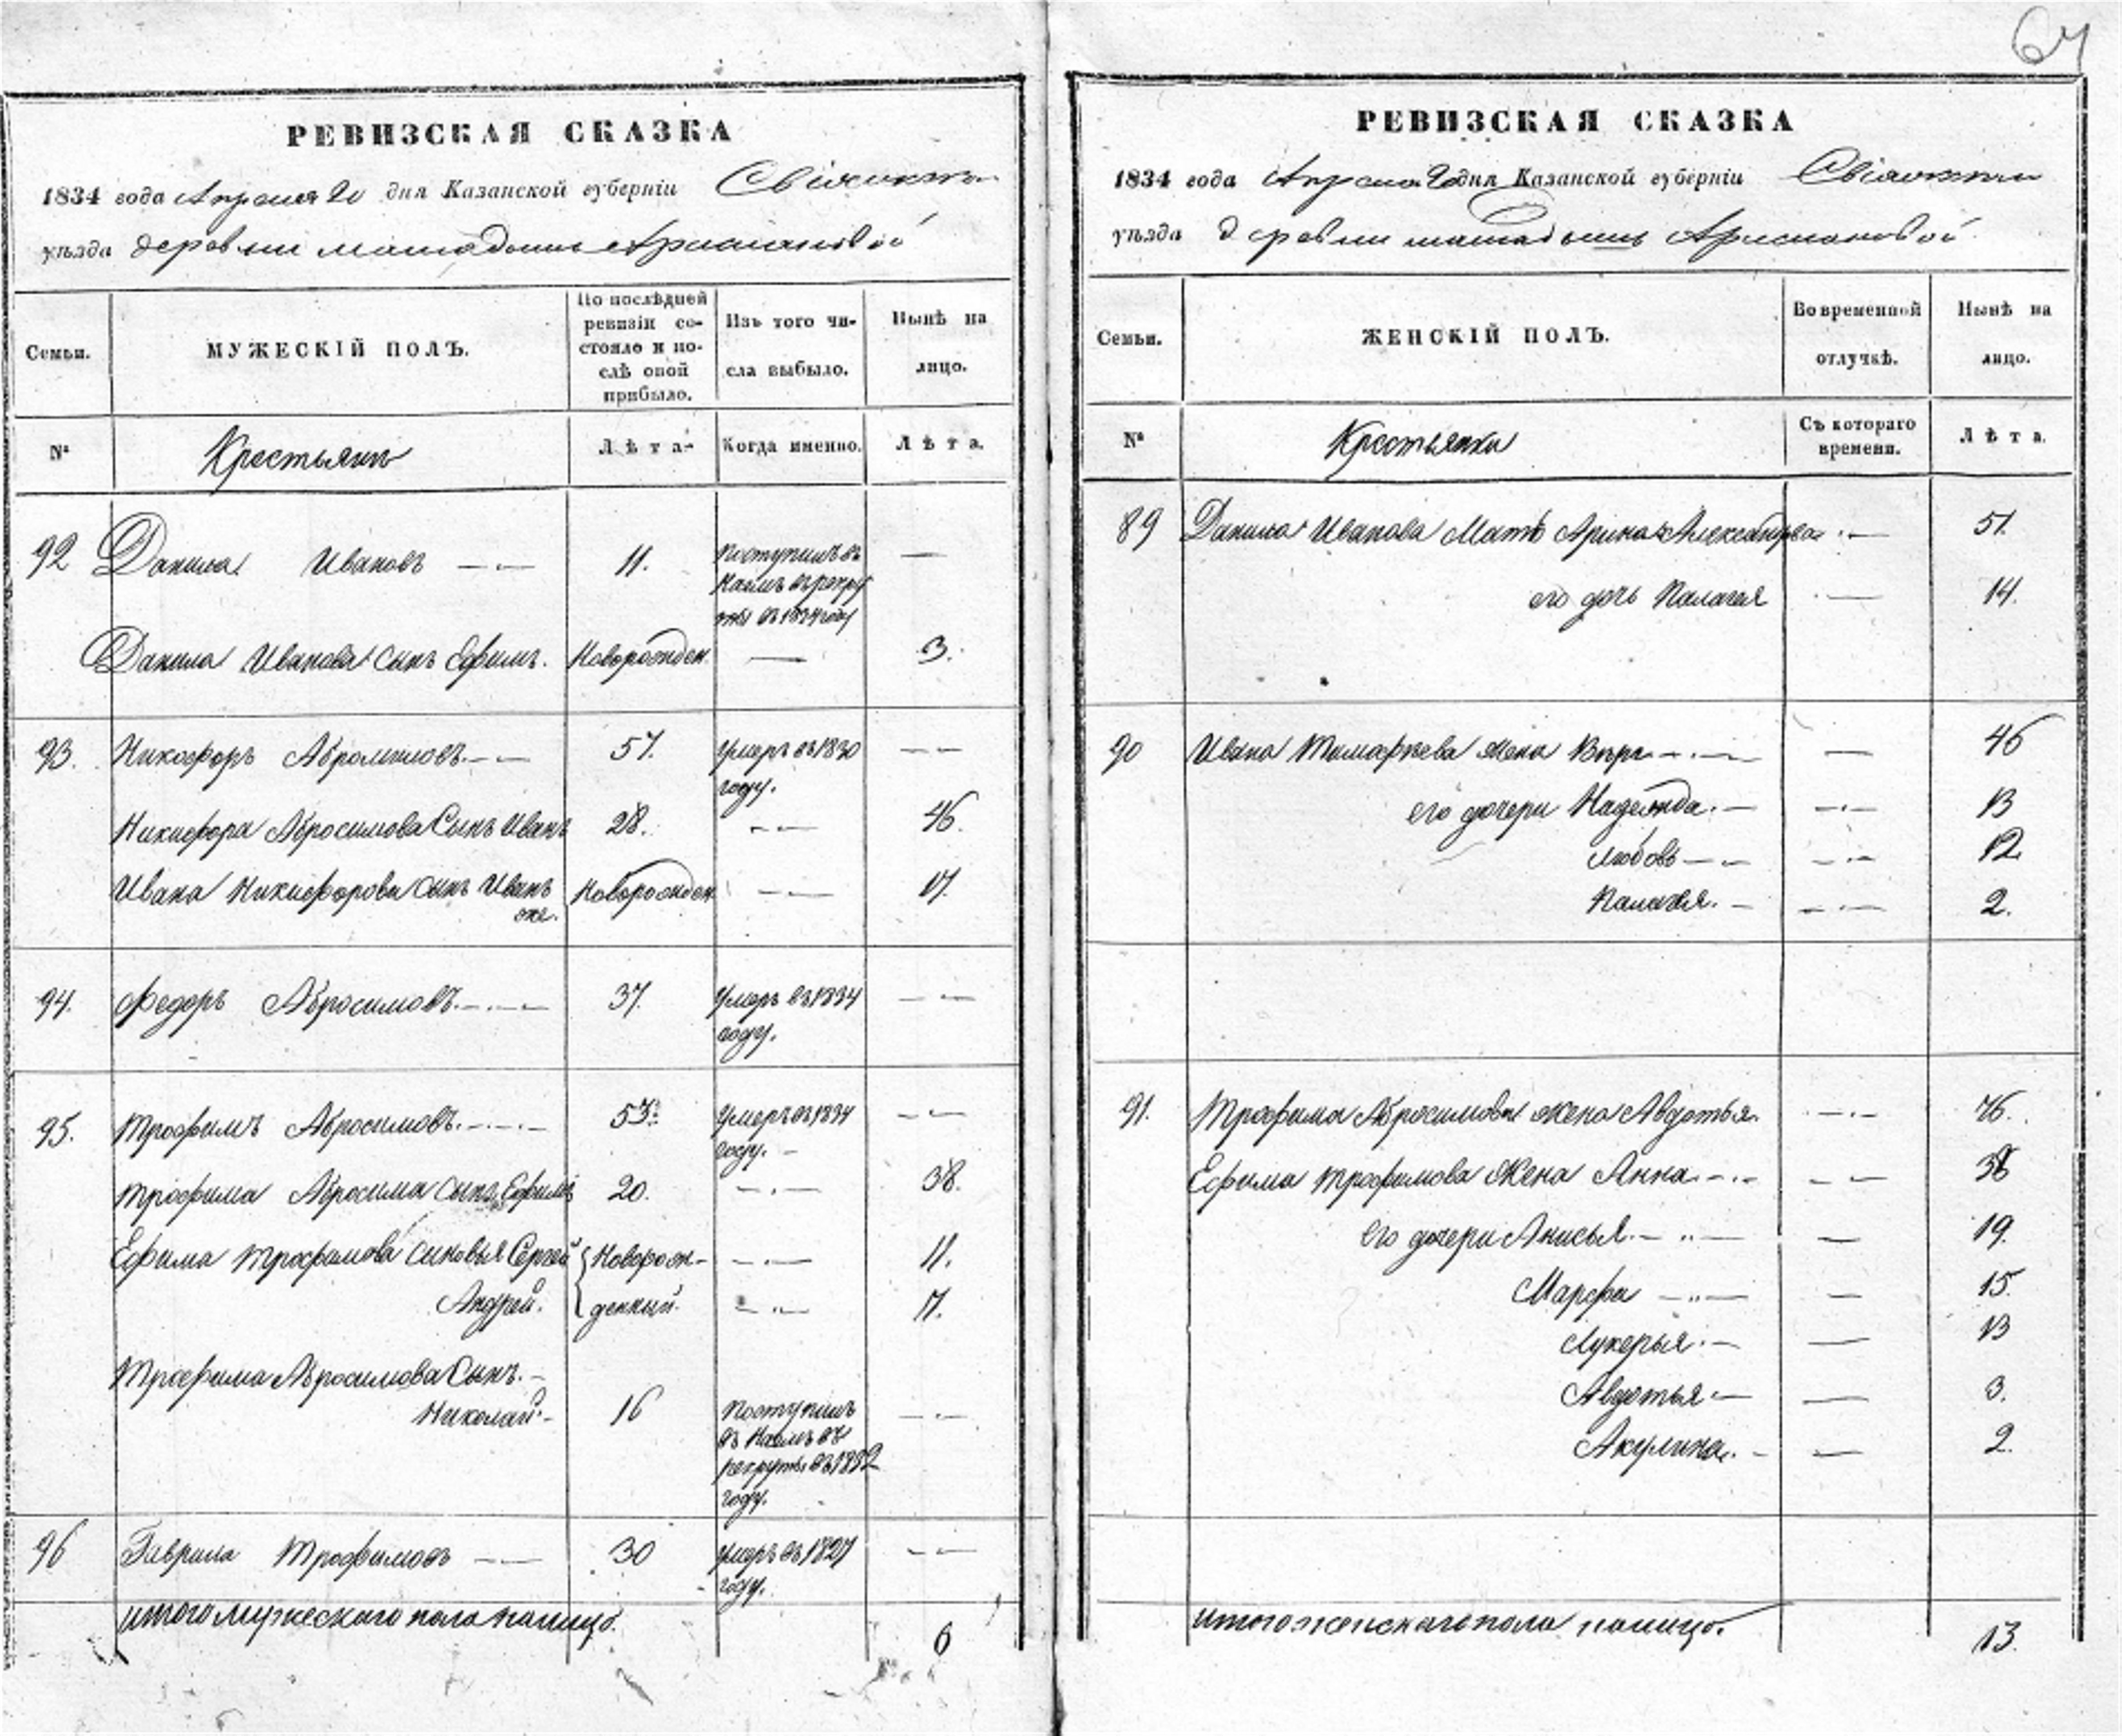 64
РЕВИЗСКАЯ СКАЗКА
1834 года Апреля 20 дня Казанской губерніи
уѣзда деревни
Семьи.
МУЖЕСКІЙ ПОЛЪ.
По послѣдней
ревизіи со-
стояло и по-
слѣ оной
прибыло.
Изъ того чи-
сла выбыло.
Нынѣ на
лицо.
№
Крестьянъ
Лѣта.
Когда именно.
Лѣта.
92 Данила Ивановъ 11. поступилъ въ
наймъ въ рекру
ты въ
Данила Иванова сынъ Ефимъ. Новорожден 3.
93. Никифоръ 57. умеръ въ 1830
году.
Никифора Абросимова Сынъ Иванъ 28. 46.
Ивана Никифорова сынъ Иванъ Новорожден 17.
же.
94. Федоръ Абросимовъ. 37. умеръ въ 1834
году.
95. Трофимъ Абросимовъ. умеръ въ 1834
году.
Трофима Абросима сынъ Ефимъ 20. 38.
Ефима Трофимова сыновья Сергей Новорож- 11.
Андрей. денный. 7.
Трофима Абросимова Сынъ.
Николай. 16 поступилъ
въ наймъ въ
рекруты въ 1832
году.
96 Гаврила Трофимовъ 30 умеръ въ 1827
году.
итого мужескаго пола налицо. 6
РЕВИЗСКАЯ СКАЗКА
1834 года Апреля 20 дня Казанской губерніи
уѣзда деревни
Семьи.
ЖЕНСКІЙ ПОЛЪ.
Во временной
отлучкѣ.
Нынѣ на
лицо.
№
Крестьянки
Съ котораго
времени.
Лѣта.
89 Данила Иванова Мать Арина Александрова 51.
его дочь Палагея 14.
90 Ивана жена 46
его дочери Надежда. 13
Любовь 12
Палагея. 2.
91. Трофима Абросимова жена Авдотья. 76.
Ефима Трофимова Жена Анна 38
его дочери Анисья. 19.
Марфа 15.
Лукерья. 13
Авдотья 3.
Акулина. 2.
итого женскаго пола налицо. 13.